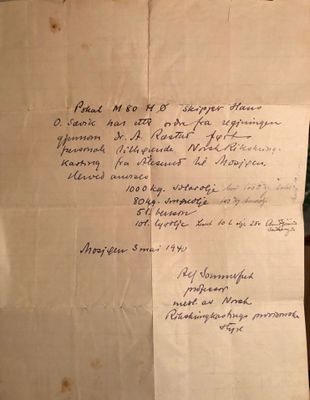 Pokal M 80 H Ø skipper Hans
O. Sævik har etter ordre fra regjeringen
gjennom Dr. A. Ræstad ført
personale tilhørende Norsk Rikskring-
kasting fra Ålesund til Mosjøen
Herved anvises
1000 kg. solarolje
80 kg. smøreolje
5 l. bensin
10 l. lysolje
Mosjøen 3 mai 1940
professor
medl. av Norsk
Rikskringkastings provisoriske
styre